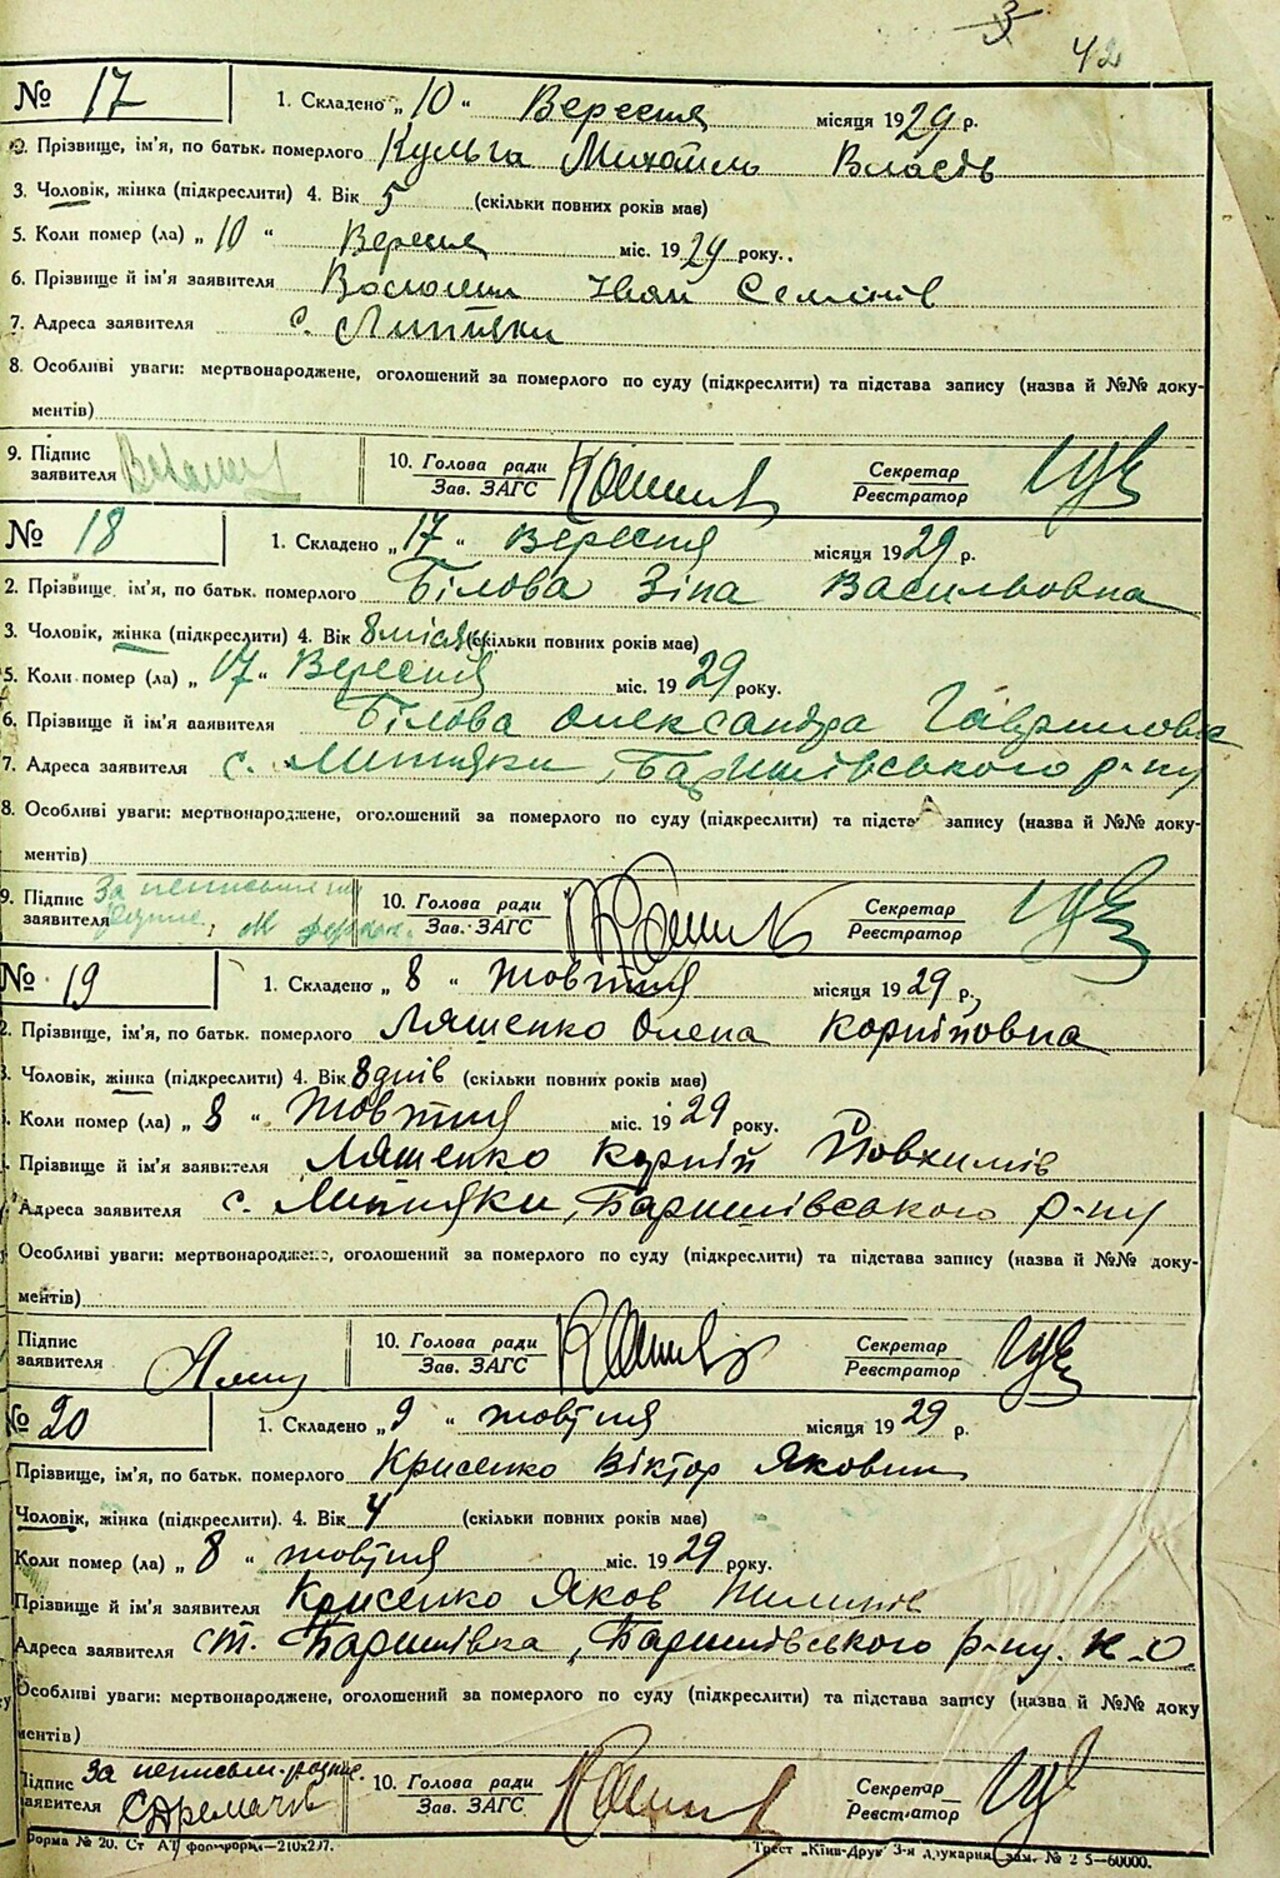 3
42
№ 17 1. Складено „ 10 “ Вересня місяця 1929 р.
2. Прізвище, ім'я, по батьк. померлого Кульга Михайль Власів
3. Чоловік, жінка (підкреслити) 4. Вік 5 (скільки повних років має)
5. Коли помер (ла) „ 10 “ Вересня міс. 1929 року..
6. Прізвище й ім'я заявителя Іван Семінів
7. Адреса заявителя с. Липняки
8. Особливі уваги: мертвонароджене, оголошений за померлого по суду (підкреслити) та підстава запису (назва й №№ доку-
ментів)
9. Підпис заявителя 10. Голова ради Зав. ЗАГС Секретар Реєстратор
№ 18 1. Складено „ 17 “ Вересня місяця 1929 р.
2. Прізвище, ім'я, по батьк. померлого Білова Зіна Васильовна
3. Чоловік, жінка (підкреслити) 4. Вік 8 місяц (скільки повних років має)
5. Коли помер (ла) „ 17 “ Вересня міс. 1929 року.
6. Прізвище й ім'я заявителя Білова Олександра Гавриловна
7. Адреса заявителя с. Липняки, Баришівського р-ну
8. Особливі уваги: мертвонароджене, оголошений за померлого по суду (підкреслити) та підста запису (назва й №№ доку-
ментів)
9. Підпис заявителя За неписьменну 10. Голова ради Зав. ЗАГС Секретар Реєстратор
№ 19 1. Складено „ 8 “ жовтня місяця 1929 р.,
2. Прізвище, ім'я, по батьк. померлого Ляшенко Олена Корніовна
3. Чоловік, жінка (підкреслити) 4. Вік 8 днів (скільки повних років має)
Коли помер (ла) „ 8 “ жовтня міс. 1929 року.
Прізвище й ім'я заявителя Ляшенко Корній Йовхимів
Адреса заявителя с. Липняки, Баришівського р-ну
Особливі уваги: мертвонароджене, оголошений за померлого по суду (підкреслити) та підстава запису (назва й №№ доку-
ментів)
Підпис заявителя 10. Голова ради Зав. ЗАГС Секретар Реєстратор
№ 20 1. Складено „ 9 “ жовтня місяця 1929 р.
Прізвище, ім'я, по батьк. померлого Крисенко Віктор Якович
Чоловік, жінка (підкреслити). 4. Вік 4 (скільки повних років має)
Коли помер (ла) „ 8 “ жовтня міс. 1929 року.
Прізвище й ім'я заявителя Крисенко Яков
Адреса заявителя ст. Баришівка, Баришівського р-ну. К.-О.
Особливі уваги: мертвонароджене, оголошений за померлого по суду (підкреслити) та підстава запису (назва й №№ доку
ментів)
Підпис заявителя За неписьм. розпис. 10. Голова ради Зав. ЗАГС Секретар Реєстратор
Форма № 20. Ст —210х297. Трест „Київ-Друк“ 3-я друкарня, зам. № 2 5—60000.